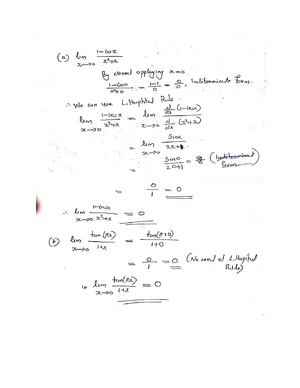 (a) lim x→0 1-cosx / x²+x
By direct applying x=0
1-cos0 / 0²+0 = 1-1 / 0 = 0/0, Indeterminate Form.
∴ We can use L.Hospital Rule
lim x→0 1-cosx / x²+x = lim x→0 d/dx (1-cosx) / d/dx (x²+x)
= lim x→0 Sinx / 2x+1
= Sin0 / 2·0+1 =
= 0/1 = 0
∴ lim x→0 1-cosx / x²+x = 0
(b) lim x→0 tan(πx) / 1+x = tan(π×0) / 1+0
= 0/1 = 0 (No need of L.Hospital
Rule)
lim x→0 tan(πx) / 1+x = 0